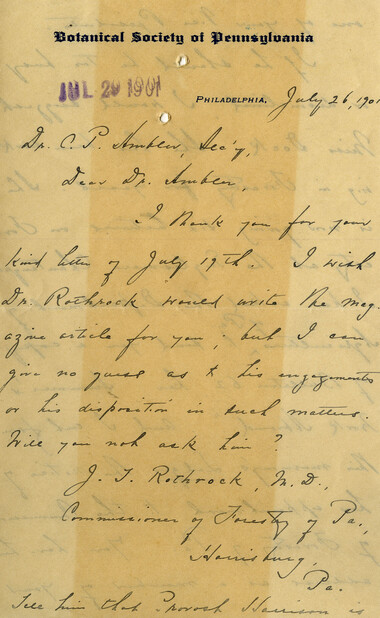 Botanical Society of Pennsylvania
JUL 29 1901
PHILADELPHIA, July 26, 1901
Dr. C. P. Ambler, Sec'y,
Dear Dr. Ambler,
I thank you for your
kind letter of July 19th. I wish
Dr. Rothrock would write the mag-
azine article for you; but I can
give no guess as to his engagements
or his disposition in such matters.
Will you not ask him?
J. T. Rothrock, M.D.,
Commissioner of Forestry of Pa.,
Harrisburg,
Pa.
Tell him that Provost Harrison is